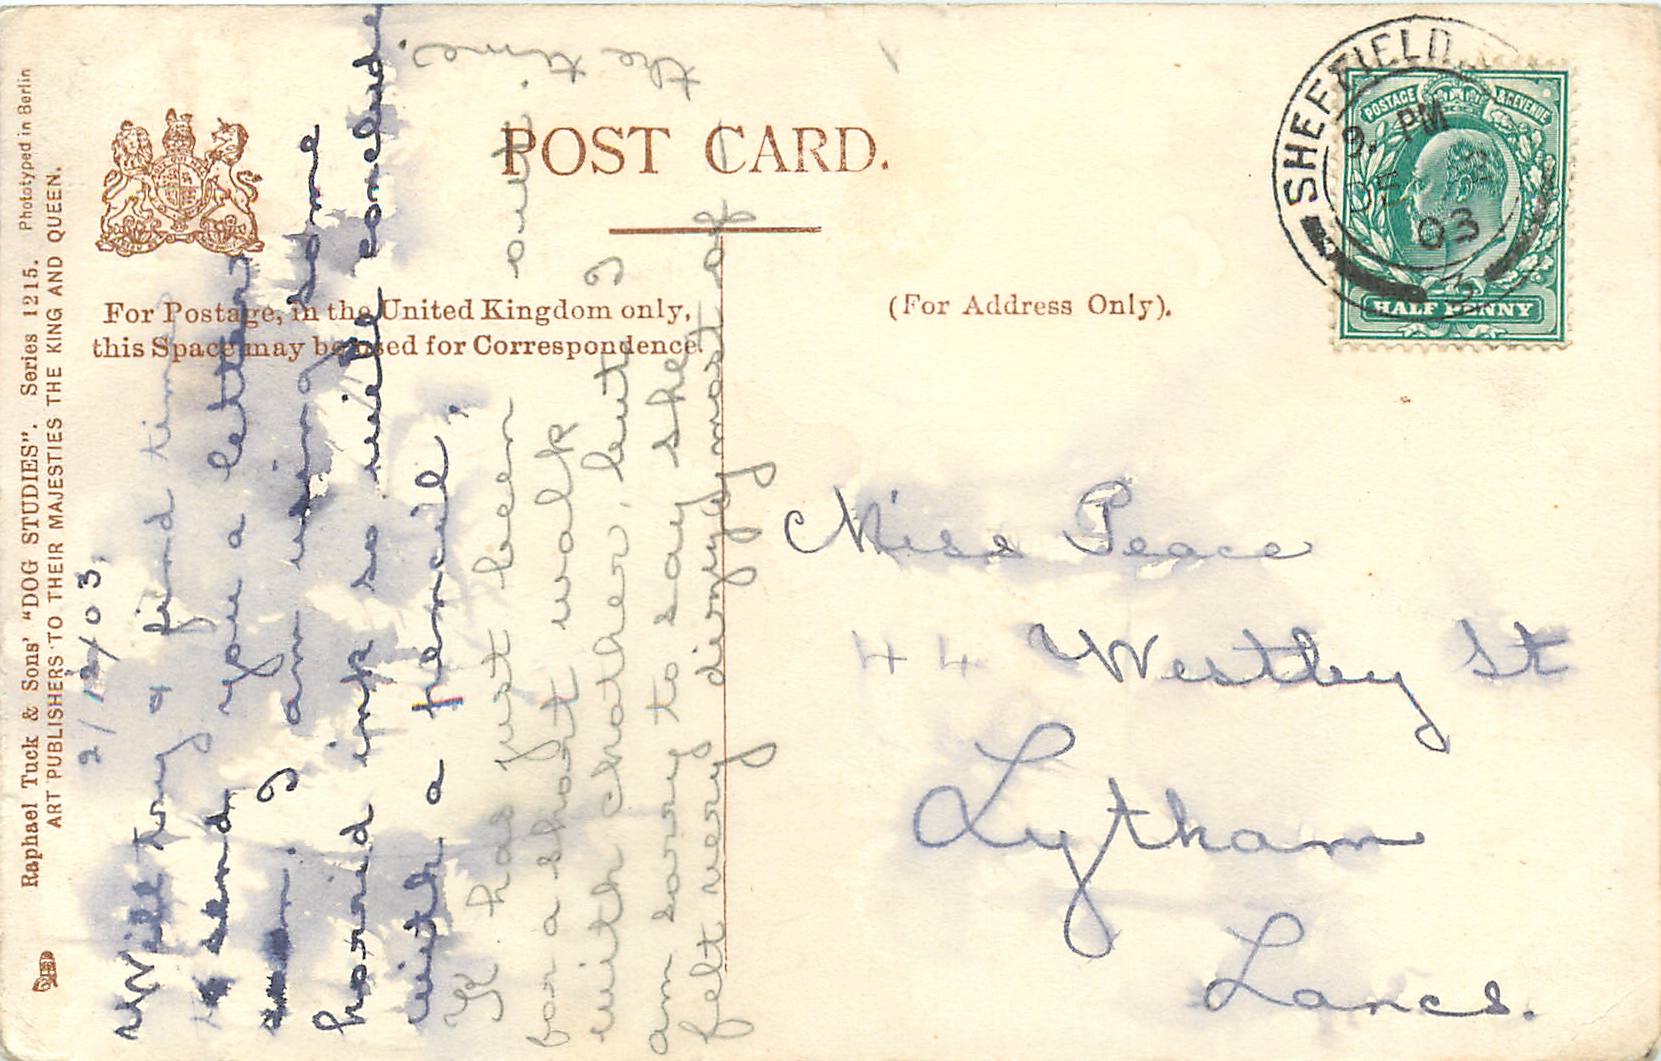 Raphael Tuck & Sons' "DOG STUDIES". Series 1215. Phototyped in Berlin
ART PUBLISHERS TO THEIR MAJESTIES THE KING AND QUEEN.
POST CARD.
For Postage, in the United Kingdom only,
this Space may be used for Correspondence.
(For Address Only).
SHEFFIELD
9. PM
DE 2
03
POSTAGE & REVENUE
HALF PENNY
2/12/03.
Will try & find time
to send you a letter
soon, I am using some
horrid ink so will conclude
with a pencil,
K has just been out.
for a short walk
with chather, but I
am sorry to say she
felt very dizzy most of
the time.
Miss Peace
44 Westley St
Lytham
Lancs.